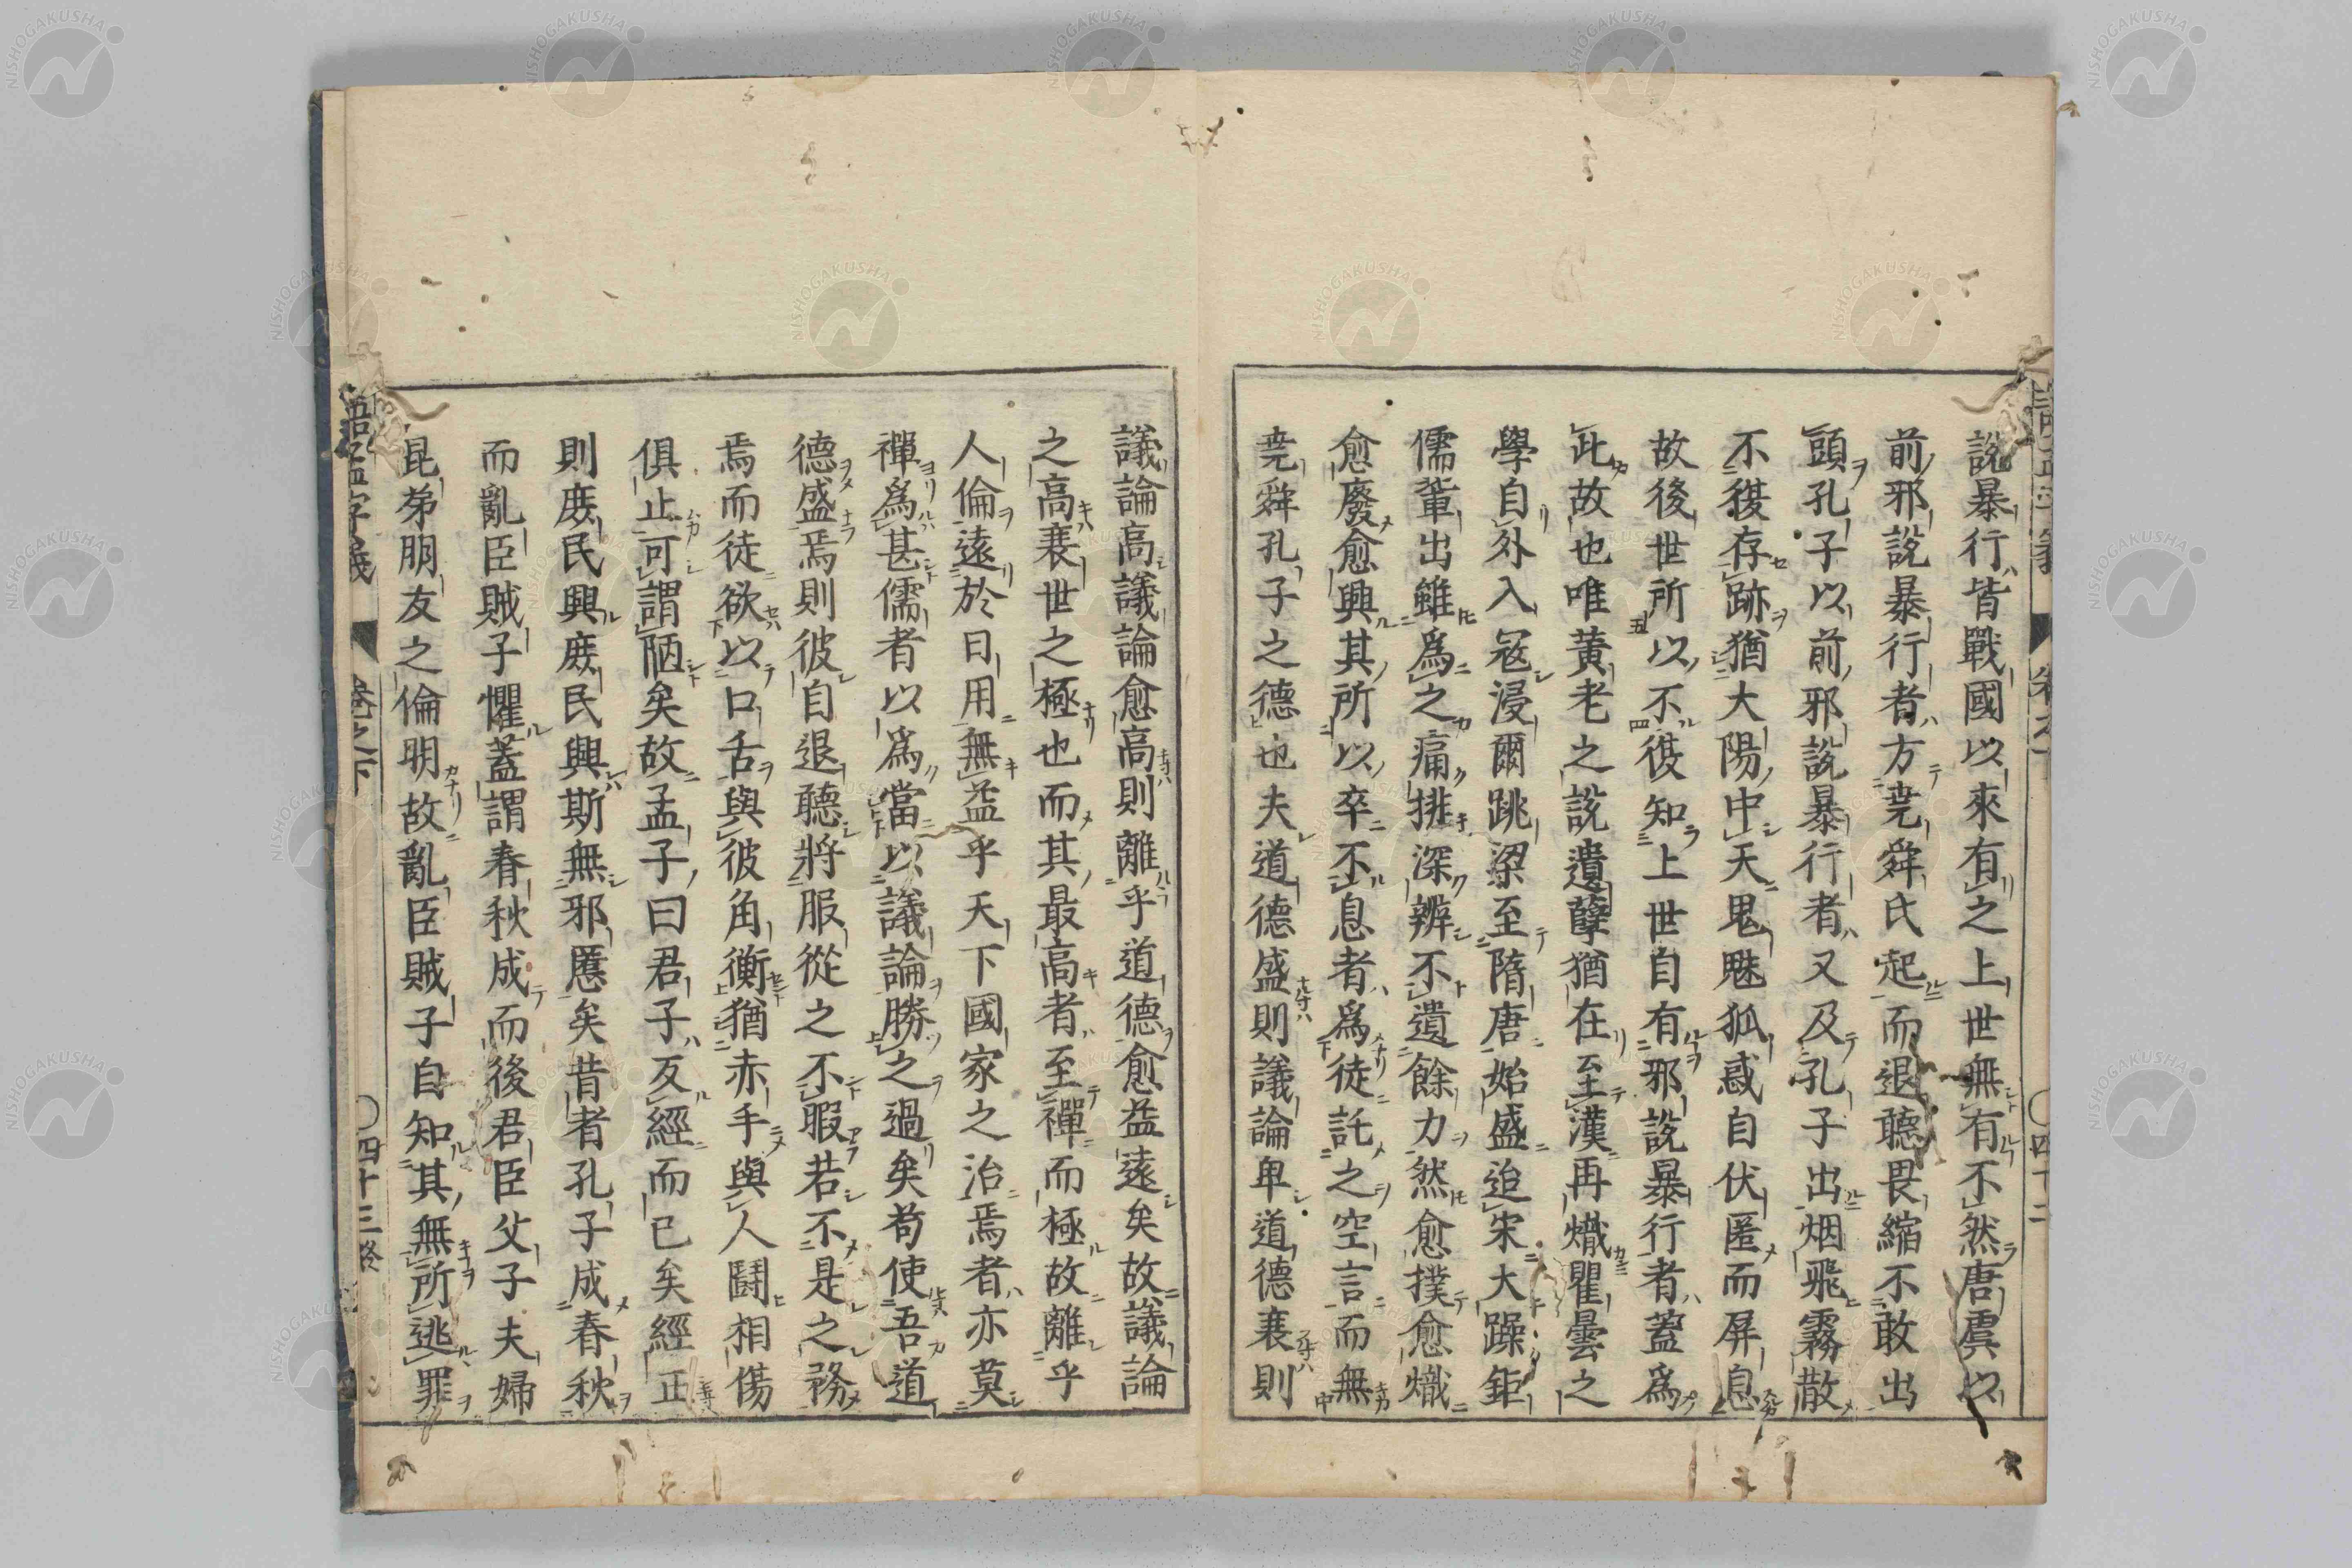 說暴行皆戰國以來有之上世無有不然唐虞以
前邪說暴行者方堯舜氏起而退聽畏縮不敢出
頭孔子以前邪說暴行者又及孔子出烟飛霧散
不復存跡猶大陽中天鬼魅狐惑自伏匿而屏息
故後世所以不復知上世自有邪說暴行者蓋爲
此故也唯黃老之說遺孽猶在至漢再熾瞿曇之
學自外入寇浸爾跳梁至隋唐始盛迨宋大躁鉅
儒輩出雖爲之痛排深辨不遺餘力然愈撲愈熾
愈廢愈興其所以卒不息者爲徒託之空言而無
堯舜孔子之德也夫道德盛則議論卑道德衰則
議論高議論愈高則離乎道德愈益遠矣故議論
之高衰世之極也而其最高者至禪而極故離乎
人倫遠於日用無益乎天下國家之治焉者亦莫
禪爲甚儒者以爲當以議論勝之過矣苟使吾道
德盛焉則彼自退聽將服從之不暇若不是之務
焉而徒欲以口舌與彼角衡猶赤手與人鬪相傷
俱止可謂陋矣故孟子曰君子反經而已矣經正
則庶民興庶民興斯無邪慝矣昔者孔子成春秋
而亂臣賊子懼蓋謂春秋成而後君臣父子夫婦
昆弟朋友之倫明故亂臣賊子自知其無所逃罪
語孟字義 卷之下 〇四十三終